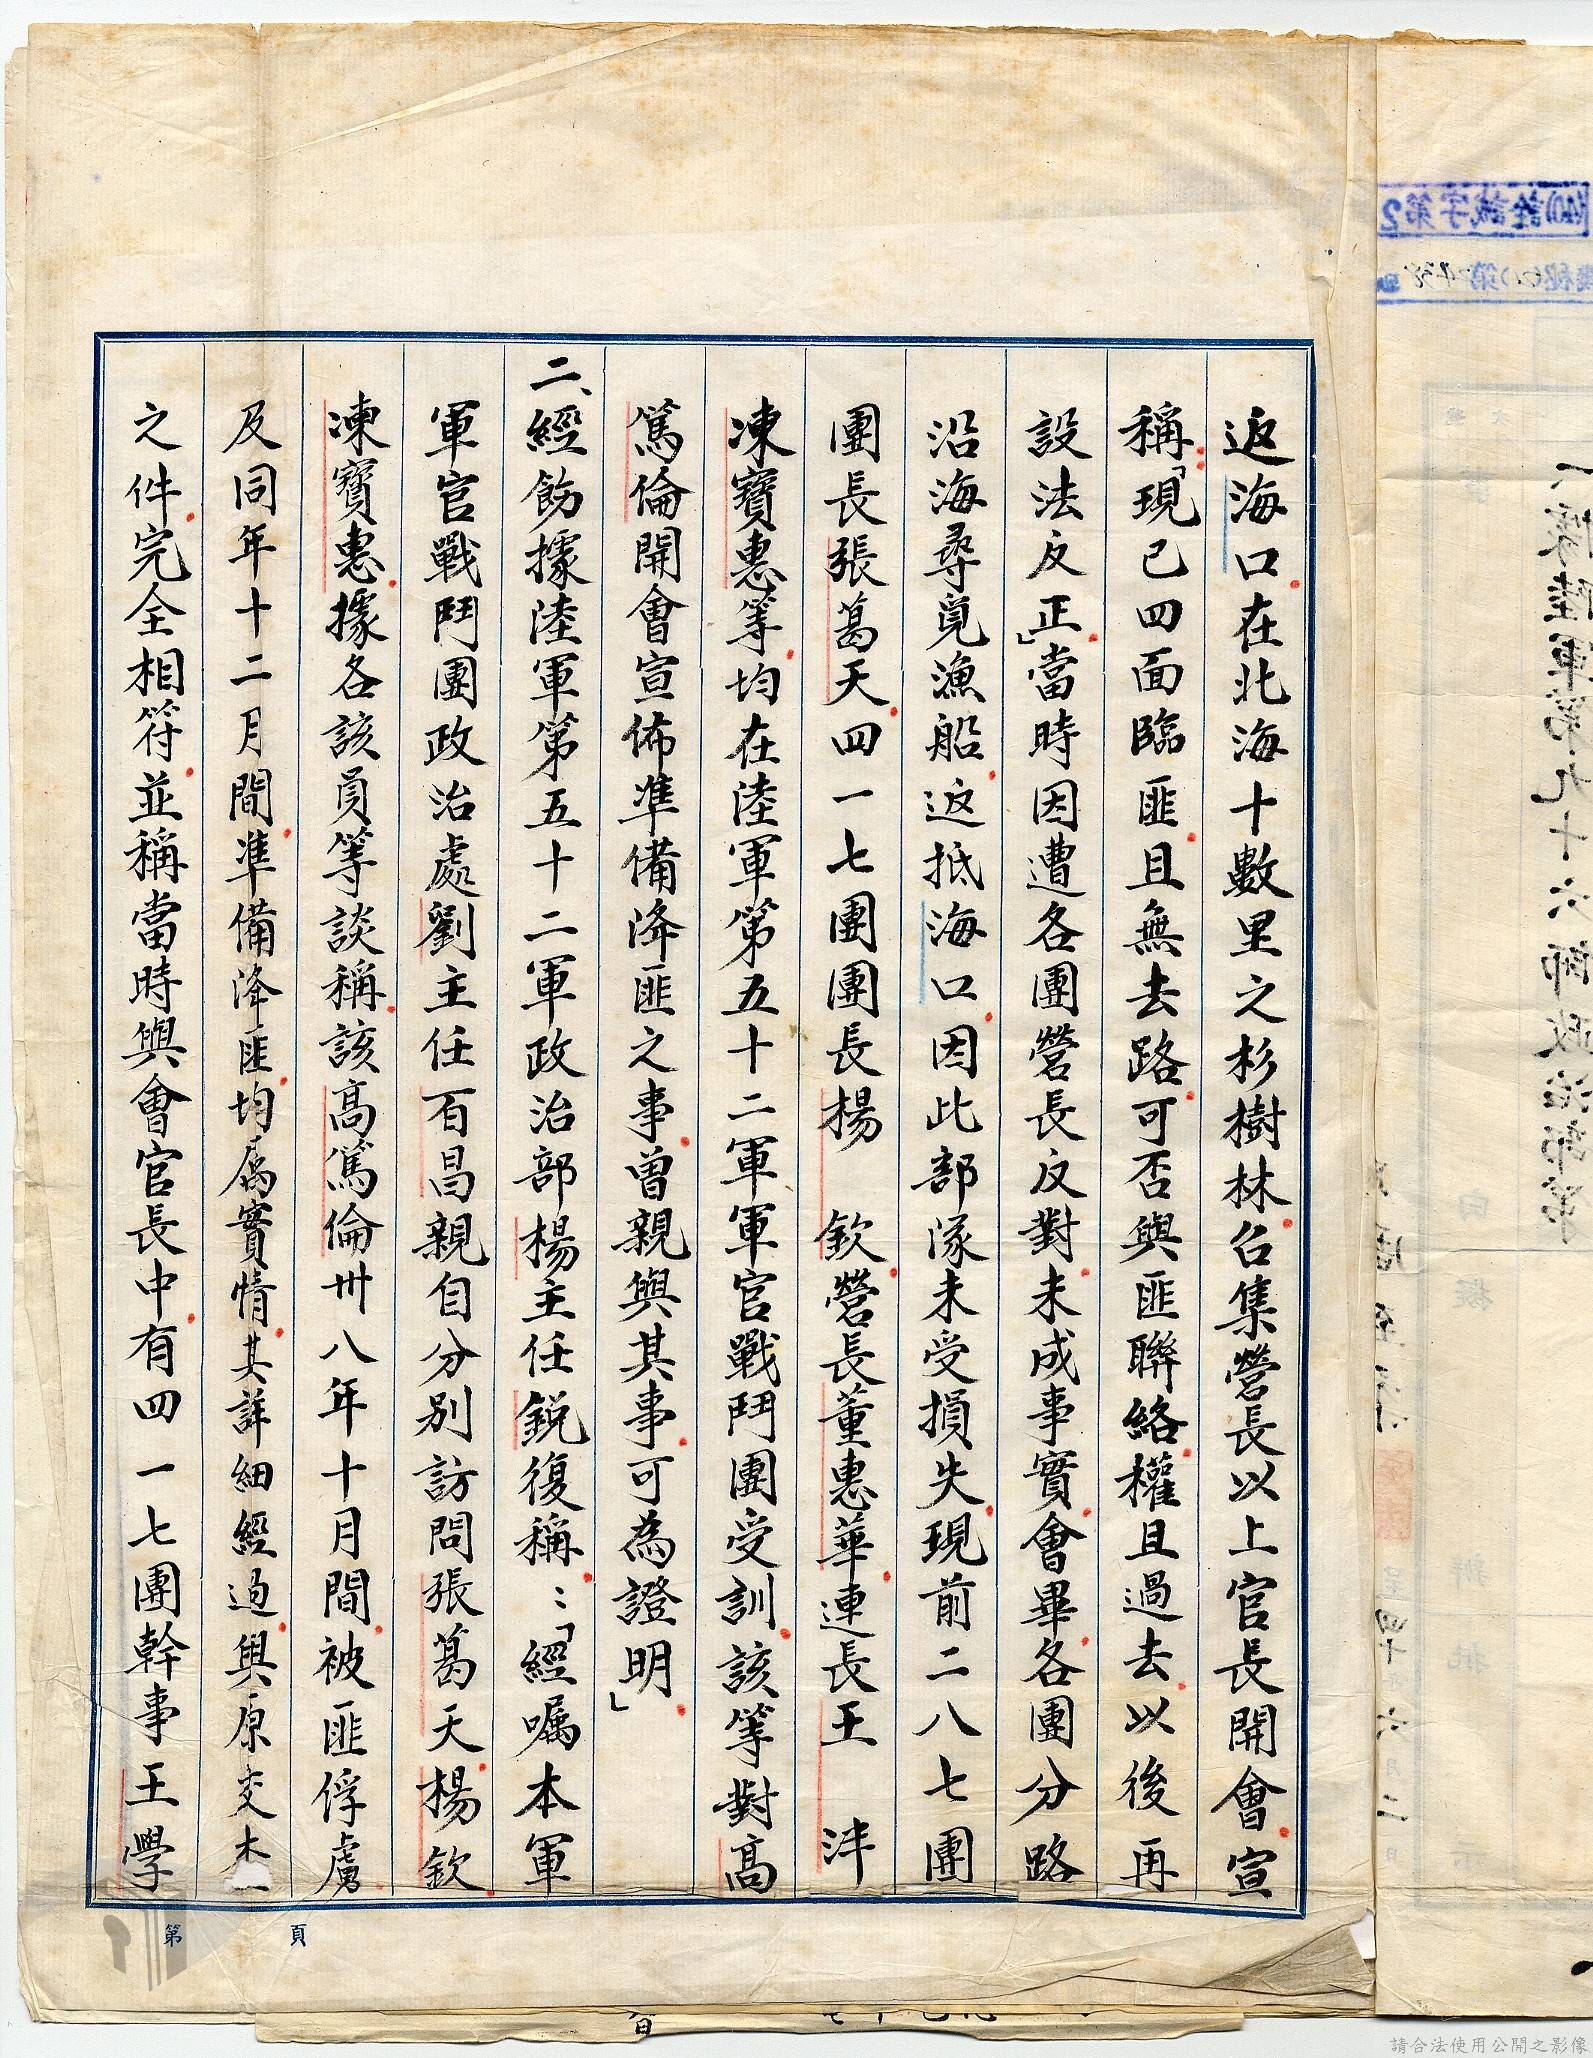 返海口在北海十數里之杉樹林召集營長以上官長開會宣
稱「現已四面臨匪且無去路可否與匪聯絡權且過去以後再
設法反正」當時因遭各團營長反對未成事實會畢各團分路
沿海尋覓漁船返抵海口因此部隊未受損失現前二八七團
團長張葛天四一七團團長楊　欽營長董惠華連長王　沣
凍寶惠等均在陸軍第五十二軍軍官戰鬥團受訓該等對高
篤倫開會宣佈準備降匪之事曾親與其事可為證明」
二、經飭據陸軍第五十二軍政治部楊主任銳復稱：「經囑本軍
軍官戰鬥團政治處劉主任百昌親自分別訪問張葛天楊欽
凍寶惠據各該員等談稱該高篤倫卅八年十月間被匪俘虜
及同年十二月間準備降匪均屬實情其詳細經過與原交
之件完全相符並稱當時與會官長中有四一七團幹事王學
第　　頁
請合法使用公開之影像